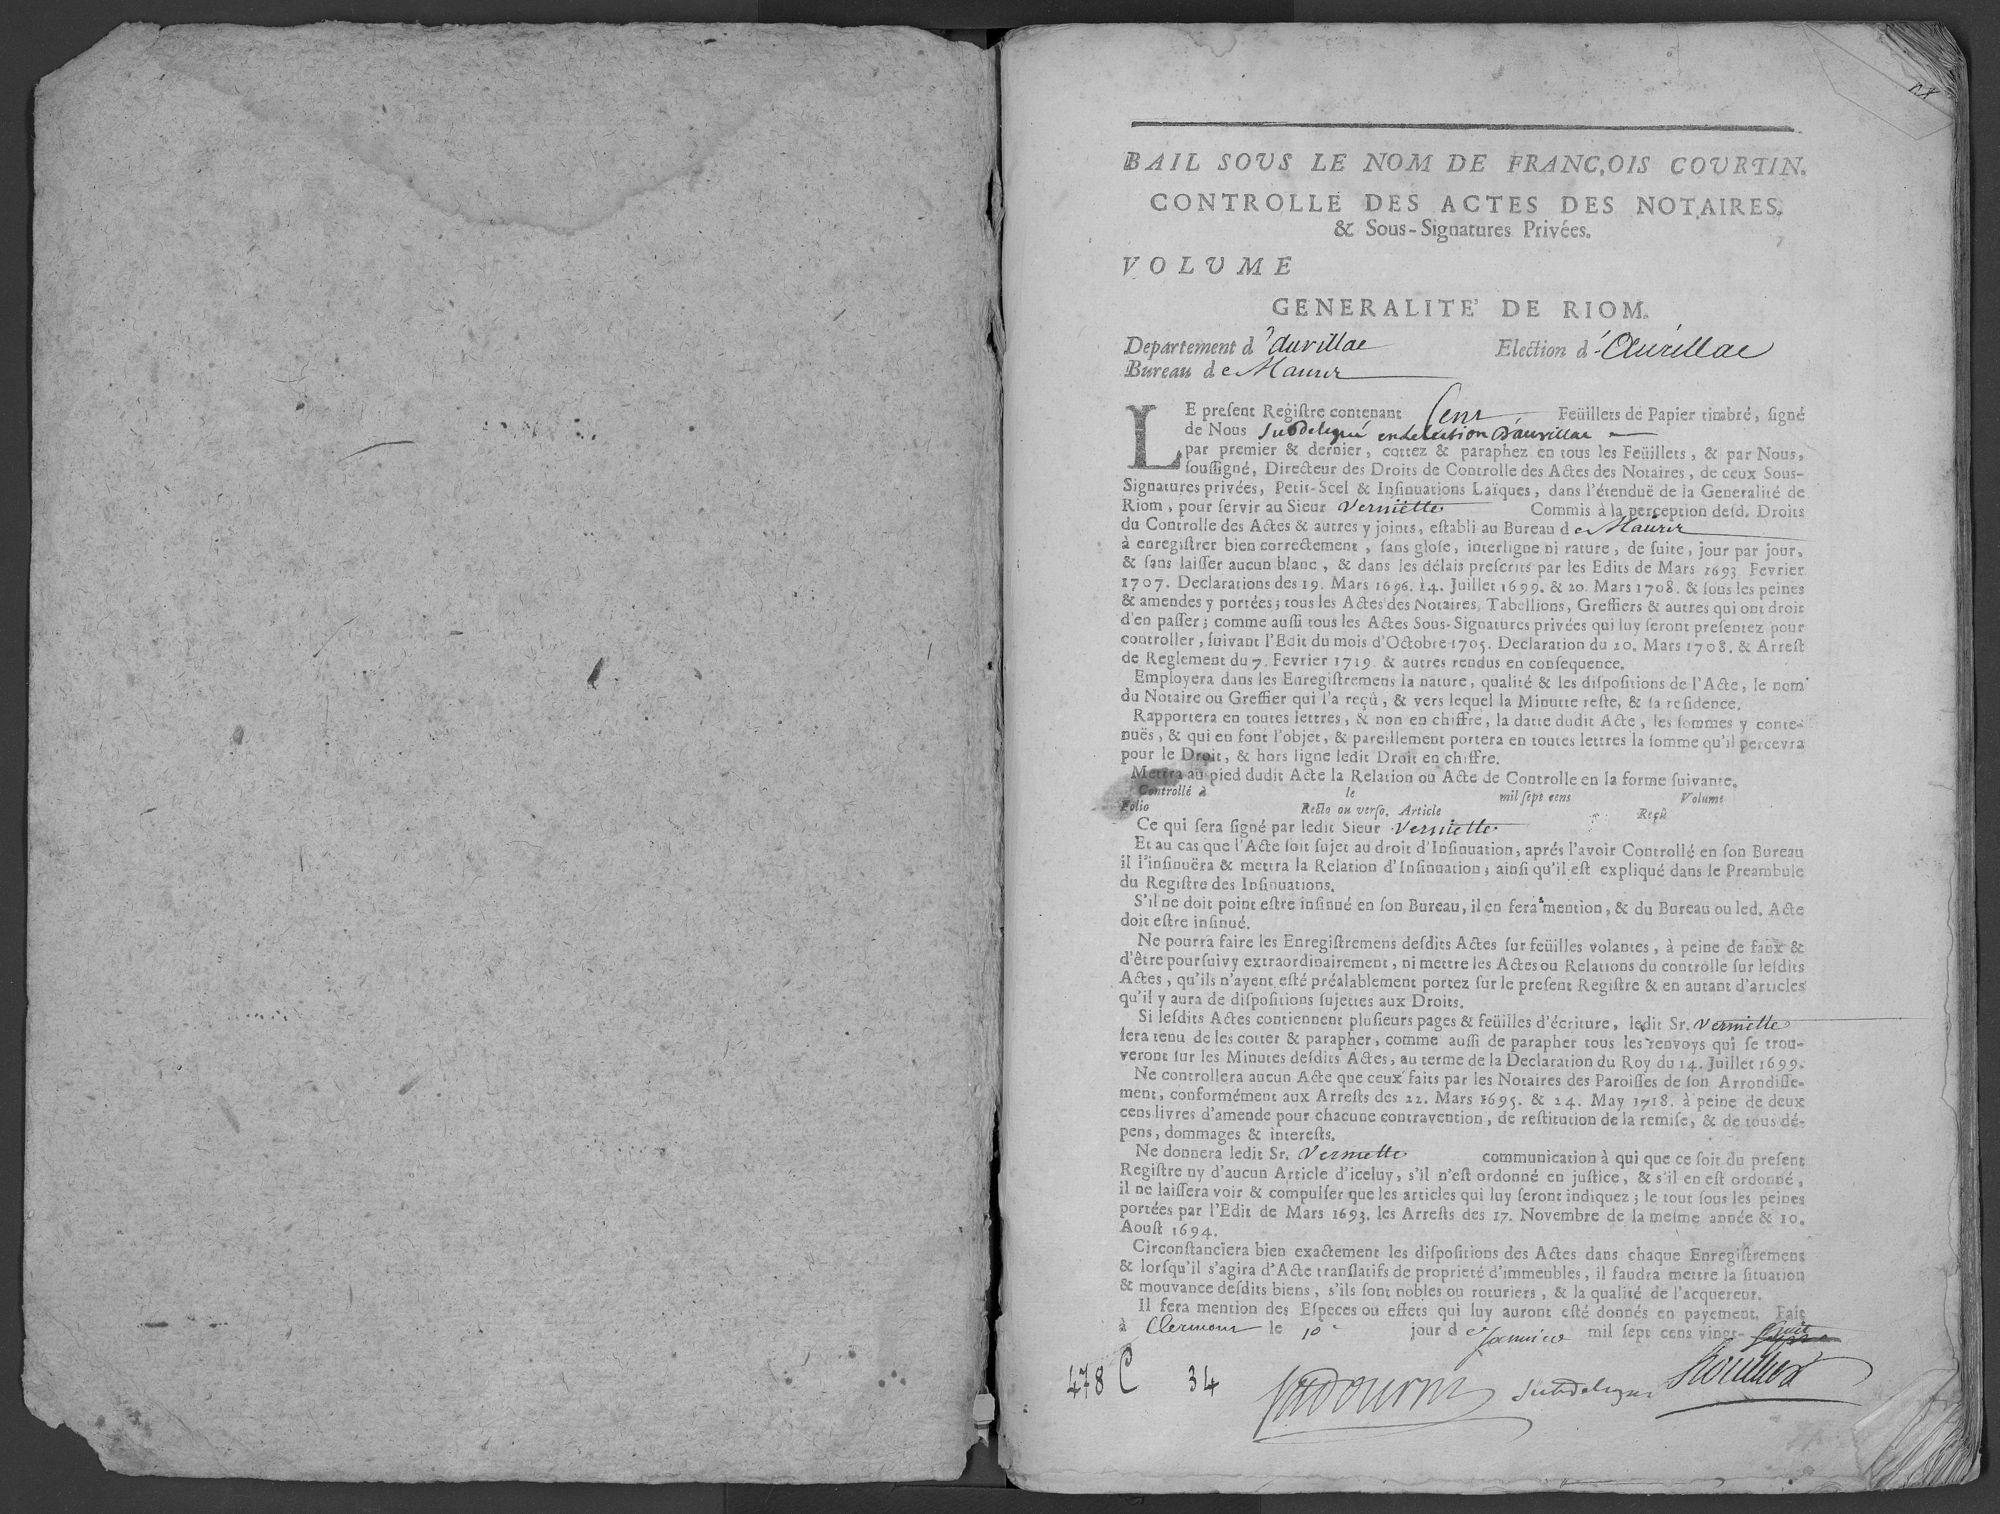 BAIL SOUS LE NOM DE FRANC,OIS COURTIN.
CONTROLLE DES ACTES DES NOTAIRES,
& Sous-Signatures Privées.
VOLUME
GENERALITE' DE RIOM.
Departement d'Aurillac Election d'Aurillac
Bureau de Maurs
LE preſent Regiſtre contenant Cent Feüillets de Papier timbré, ſigné
de Nous Subdelegué en l'election D'aurillac
par premier & dernier, cottez & paraphez en tous les Feüillets, & par Nous,
ſouſſigné, Directeur des Droits de Controlle des Actes des Notaires, de ceux Sous-
Signatures privées, Petit-Scel & Inſinuations Laïques, dans l'étenduë de la Generalité de
Riom, pour ſervir au Sieur Verniette Commis à la perception deſd. Droits
du Controlle des Actes & autres y joints, eſtabli au Bureau de Maurs
à enregiſtrer bien correctement, ſans gloſe, interligne ni rature, de ſuite, jour par jour,
& ſans laiſſer aucun blanc, & dans les délais preſcrits par les Edits de Mars 1693. Fevrier
1707. Declarations des 19. Mars 1696. 14. Juillet 1699. & 20. Mars 1708. & ſous les peines
& amendes y portées; tous les Actes des Notaires, Tabellions, Greffiers & autres qui ont droit
d'en paſſer; comme auſſi tous les Actes Sous-Signatures privées qui luy ſeront preſentez pour
controller, ſuivant l'Edit du mois d'Octobre 1705. Declaration du 20. Mars 1708. & Arreſt
de Reglement du 7. Fevrier 1719. & autres rendus en conſequence.
Employera dans les Enregiſtremens la nature, qualité & les diſpoſitions de l'Acte, le nom
du Notaire ou Greffier qui l'a reçû, & vers lequel la Minutte reſte, & ſa reſidence.
Rapportera en toutes lettres, & non en chiffre, la datte dudit Acte, les ſommes y conte-
nuës, & qui en font l'objet, & pareillement portera en toutes lettres la ſomme qu'il percevra
pour le Droit, & hors ligne ledit Droit en chiffre.
Mettra au pied dudit Acte la Relation ou Acte de Controlle en la forme ſuivante.
Controllé à le mil ſept cens Volume
Folio Recto ou verſo, Article Reçû
Ce qui ſera ſigné par ledit Sieur Verniette
Et au cas que l'Acte ſoit ſujet au droit d'Inſinuation, aprés l'avoir Controllé en ſon Bureau
il l'inſinuëra & mettra la Relation d'Inſinuation; ainſi qu'il eſt expliqué dans le Preambule
du Regiſtre des Inſinuations.
S'il ne doit point eſtre inſinué en ſon Bureau, il en fera mention, & du Bureau ou led. Acte
doit eſtre inſinué.
Ne pourra faire les Enregiſtremens deſdits Actes ſur feüilles volantes, à peine de faux &
d'être pourſuivy extraordinairement, ni mettre les Actes ou Relations du controlle ſur leſdits
Actes, qu'ils n'ayent eſté préalablement portez ſur le preſent Regiſtre & en autant d'articles
qu'il y aura de diſpoſitions ſujettes aux Droits.
Si leſdits Actes contiennent pluſieurs pages & feüilles d'écriture, ledit Sr. Verniette
ſera tenu de les cotter & parapher, comme auſſi de parapher tous les renvoys qui ſe trou-
veront ſur les Minutes deſdits Actes, au terme de la Declaration du Roy du 14. Juillet 1699.
Ne controllera aucun Acte que ceux faits par les Notaires des Paroiſſes de ſon Arrondiſſe-
ment, conformément aux Arreſts des 22. Mars 1695. & 24. May 1718. à peine de deux
cens livres d'amende pour chacune contravention, de reſtitution de la remiſe, & de tous dé-
pens, dommages & intereſts.
Ne donnera ledit Sr. Verniette communication à qui que ce ſoit du preſent
Regiſtre ny d'aucun Article d'iceluy, s'il n'eſt ordonné en juſtice, & s'il en eſt ordonné,
il ne laiſſera voir & compulſer que les articles qui luy ſeront indiquez; le tout ſous les peines
portées par l'Edit de Mars 1693. les Arreſts des 17. Novembre de la meſme année & 10.
Aouſt 1694.
Circonſtanciera bien exactement les diſpoſitions des Actes dans chaque Enregiſtrement
& lorſqu'il s'agira d'Acte tranſlatifs de proprieté d'immeubles, il faudra mettre la ſituation
& mouvance deſdits biens, s'ils ſont nobles ou roturiers, & la qualité de l'acquereur.
Il fera mention des Eſpeces ou effets qui luy auront eſté donnés en payement. Fait
à Clermont le 10e jour de Janvier mil ſept cens vingt-huit
478 C 34 Subdelegué